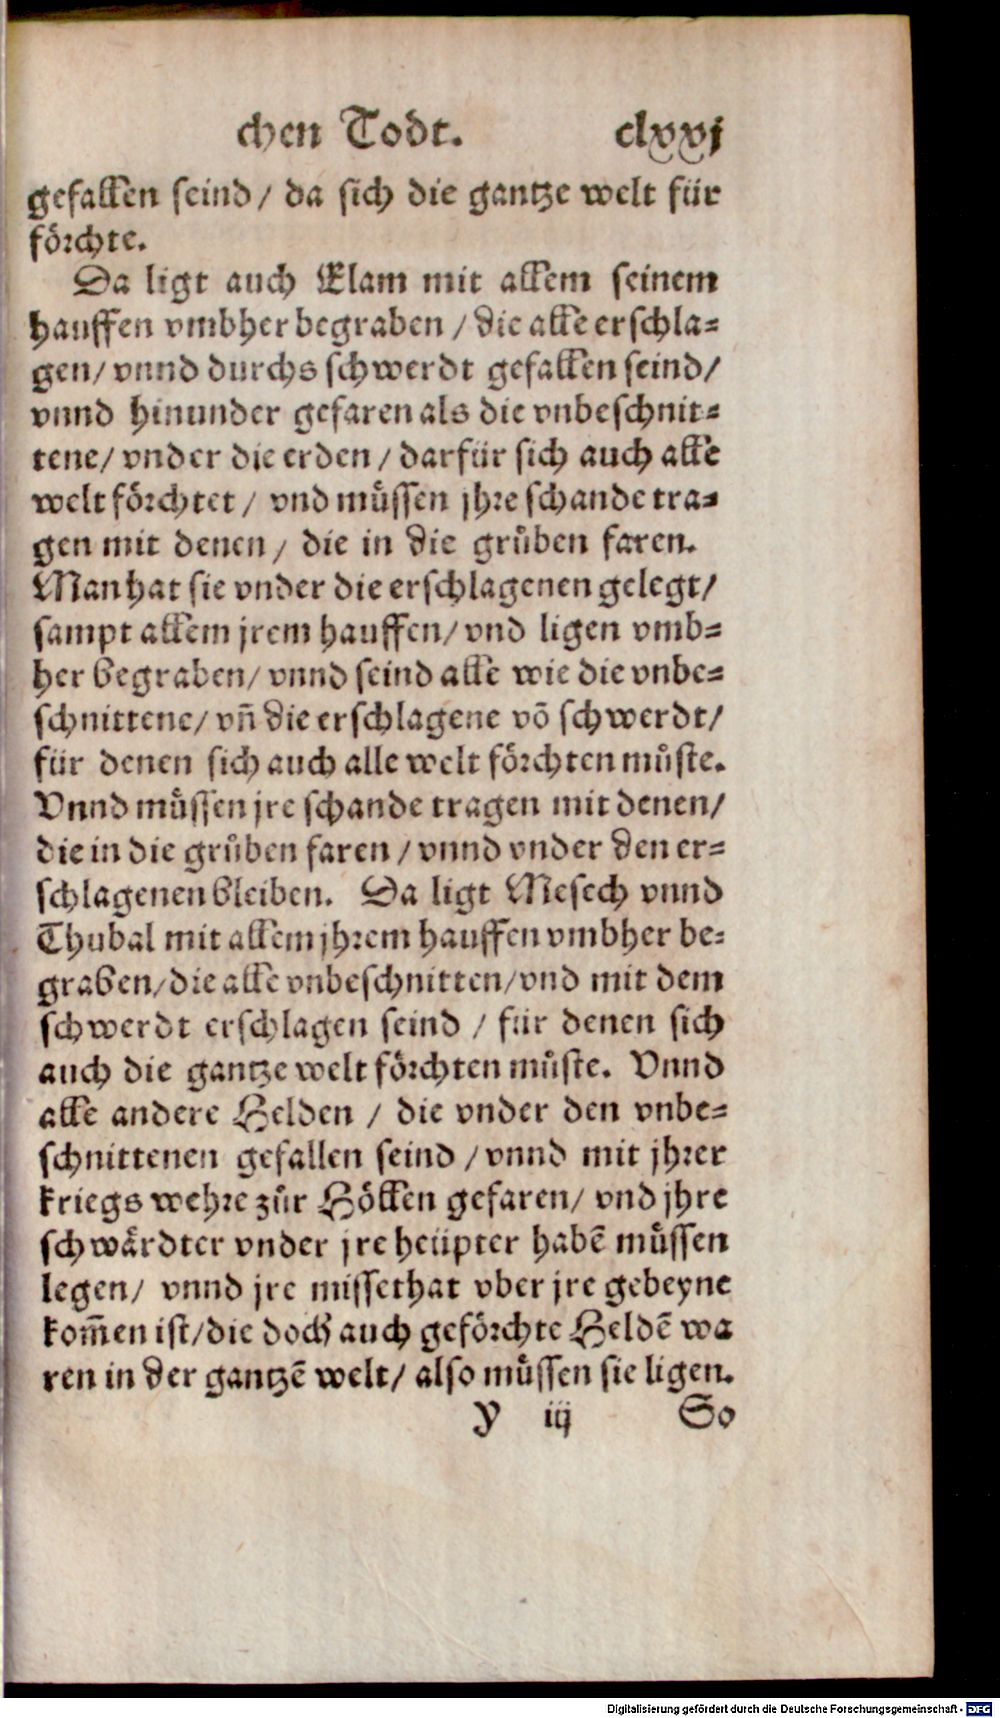 chen Todt. clxxj
gefallen seind / da sich die gantze welt für
förchte.
Da ligt auch Elam mit allem seinem
hauffen vmbher begraben / die alle erschla-
gen / vnnd durchs schwerdt gefallen seind /
vnnd hinunder gefaren als die vnbeschnit-
tene / vnder die erden / darfür sich auch alle
welt förchtet / vnd müssen jhre schande tra-
gen mit denen / die in die grůben faren.
Man hat sie vnder die erschlagenen gelegt /
sampt allem jrem hauffen / vnd ligen vmb-
her begraben / vnnd seind alle wie die vnbe-
schnittene / vñ die erschlagene võ schwerdt /
für denen sich auch alle welt förchten můste.
Vnnd müssen jre schande tragen mit denen /
die in die grůben faren / vnnd vnder den er-
schlagenen bleiben. Da ligt Mesech vnnd
Thubal mit allem jhrem hauffen vmbher be-
graben / die alle vnbeschnitten / vnd mit dem
schwerdt erschlagen seind / für denen sich
auch die gantze welt förchten můste. Vnnd
alle andere Helden / die vnder den vnbe-
schnittenen gefallen seind / vnnd mit jhrer
kriegs wehre zůr Höllen gefaren / vnd jhre
schwärdter vnder jre heüpter habẽ müssen
legen / vnnd jre missethat vber jre gebeyne
kom̃en ist / die doch auch geförchte Heldẽ wa
ren in der gantzẽ welt / also müssen sie ligen.
Y iij So
Digitalisierung gefördert durch die Deutsche Forschungsgemeinschaft - DFG